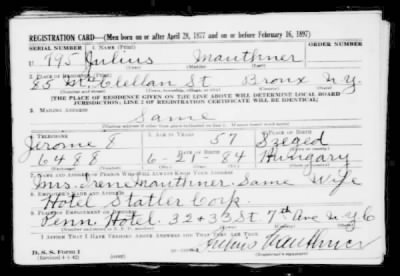 REGISTRATION CARD—(Men born on or after April 28, 1877 and on or before February 16, 1897)
SERIAL NUMBER 1. NAME (Print) ORDER NUMBER
U 795 Julius Mauthner
2. PLACE OF RESIDENCE (Print)
85 McClellan St Bronx N.Y.
[THE PLACE OF RESIDENCE GIVEN ON THE LINE ABOVE WILL DETERMINE LOCAL BOARD
JURISDICTION; LINE 2 OF REGISTRATION CERTIFICATE WILL BE IDENTICAL]
3. MAILING ADDRESS
Same
4. TELEPHONE 5. AGE IN YEARS 6. PLACE OF BIRTH
Jerome 8 57 Szeged
6488 6-21-84 Hungary
7. NAME AND ADDRESS OF PERSON WHO WILL ALWAYS KNOW YOUR ADDRESS
Mrs. Irene Mauthner Same Wife
8. EMPLOYER'S NAME AND ADDRESS
Hotel Statler Corp.
9. PLACE OF EMPLOYMENT OR BUSINESS
Penn. Hotel. 32+33 St 7th Ave N.Y.C
I AFFIRM THAT I HAVE VERIFIED ABOVE ANSWERS AND THAT THEY ARE TRUE.
D. S. S. Form 1
(Revised 4-1-42)
Julius Mauthner